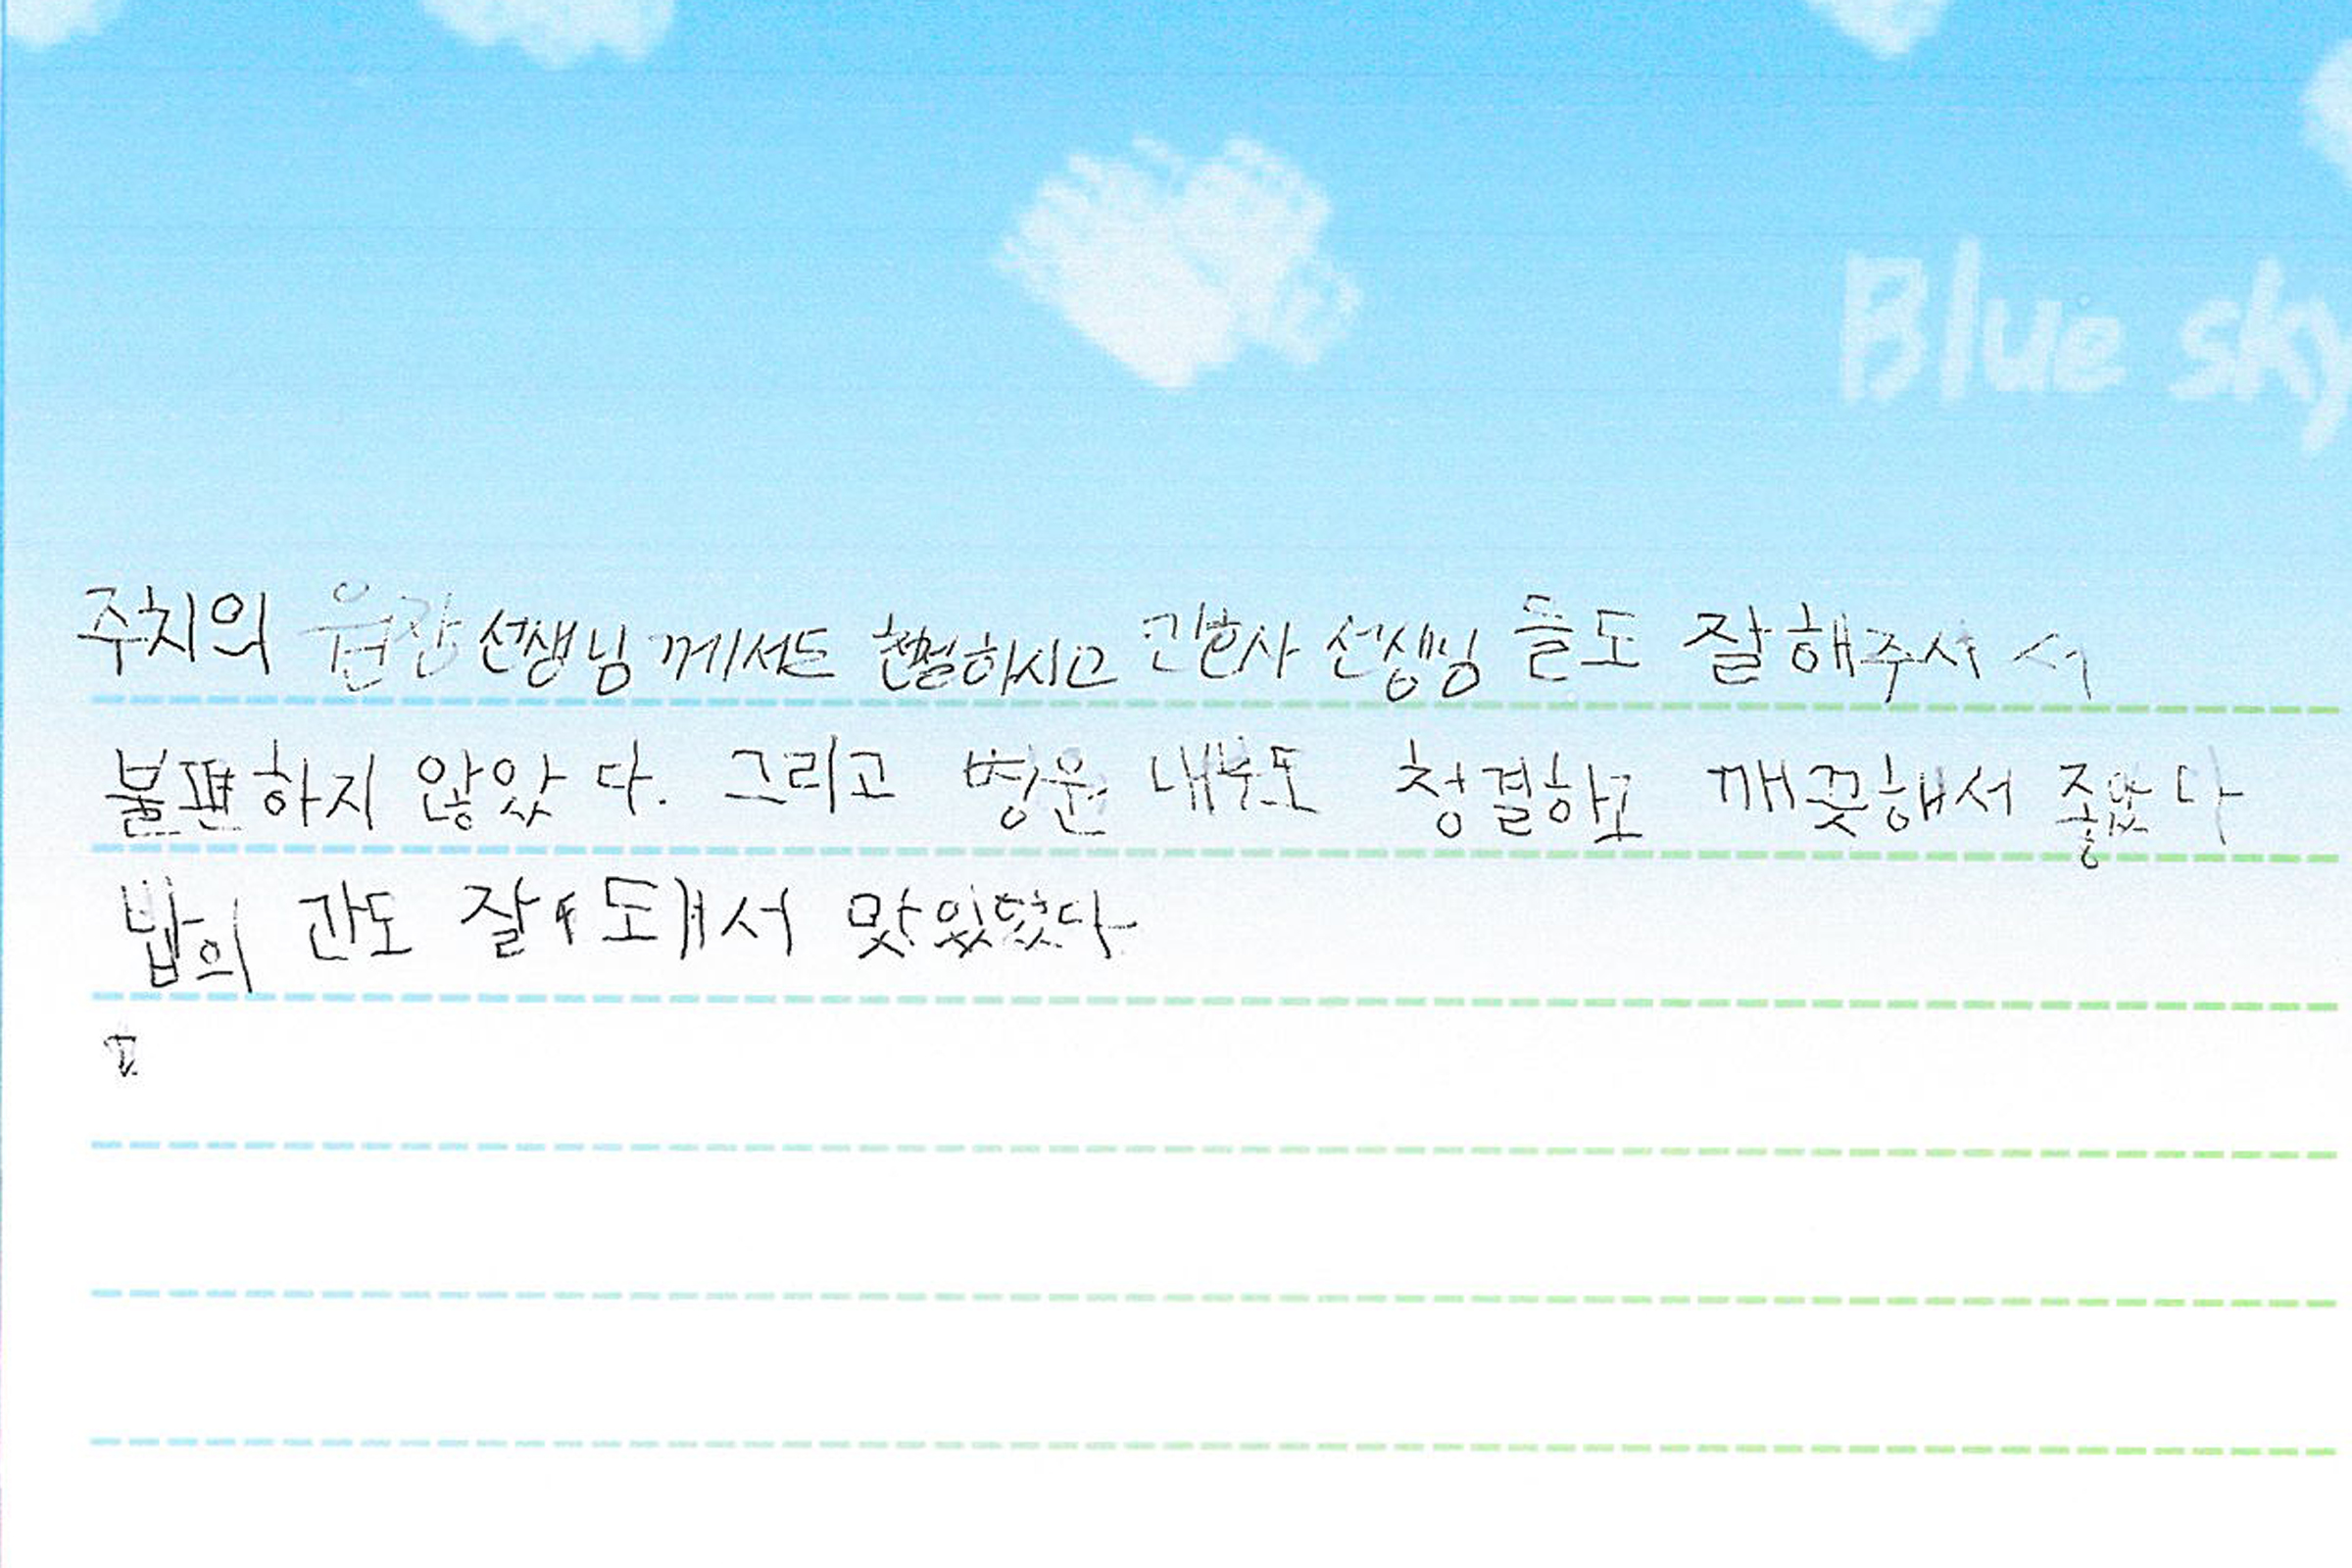 Blue sky
주치의 원장 선생님 께서도 친절하시고 간호사 선생님 들도 잘해주셔 서
불편하지 않았 다. 그리고 병원 내부도 청결하고 깨끗해서 좋았다
밥의 간도 잘 되서 맛있었다